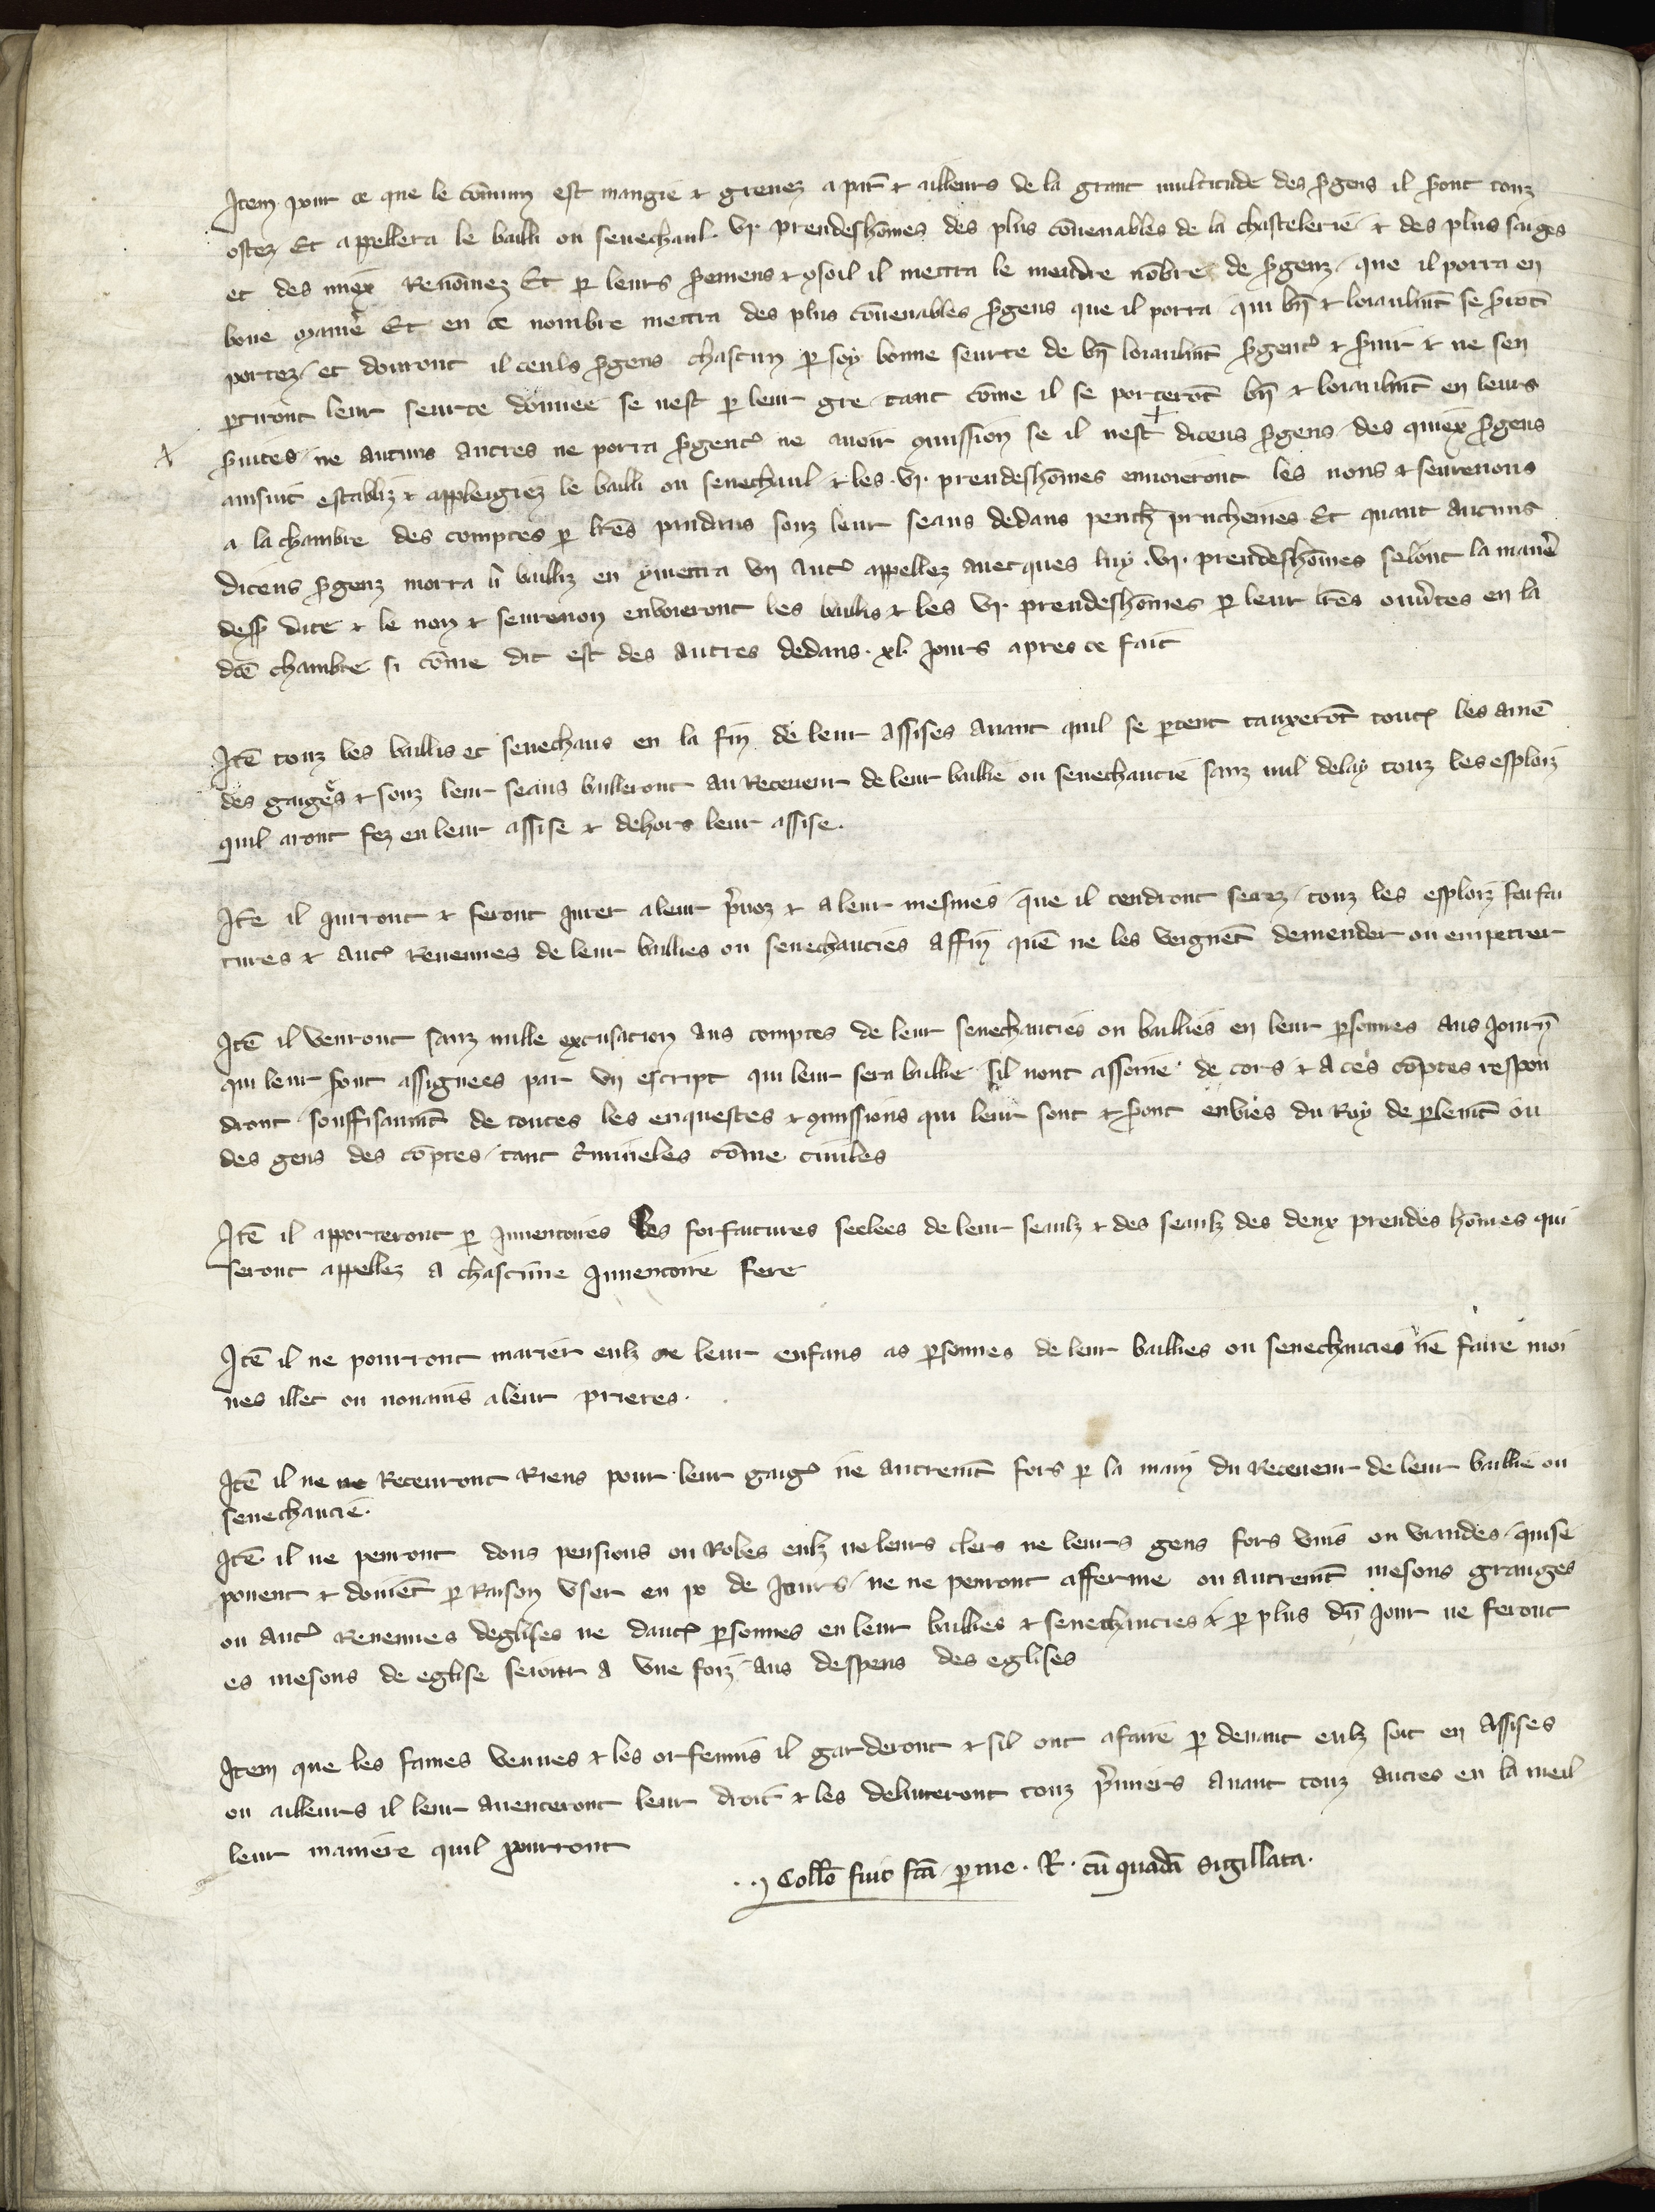 Item pour ce que le cōmun est mangie & grevez a par̄ & ailleurs de la grant multitude des s̄gens il s̄ont touz
ostez Et appellera le bailli ou senechaul . vj. preudeshōmes des plus cōvenables de la chastelerie & des plus saiges
et des miex Renōmez Et p̱ leurs s̄emens & ꝯsoil il mettra le mendre nōbre de s̄genz que il porra en
bone manie᷑ Et en ce nombre mettra des plus cōvenables s̄gens que il porra qui bn̄ & loiaulmt̄ se s̄ront
portez et donront il ceuls s̄gens chascun p̱ soy bonne seurte de bn̄ loiaulmt̄ s̄genter & s̄vir & ne sen
p̱tiront leur seurte donnee se nest p̱ leur gre tant cōme il se porterōt bn̄ & loiaulmt̄ en leurs
s̄vices ne aucuns autres ne porra s̄genter ne avoir ꝯmission se il nest diceus s̄gens des quiex s̄gens
ainsint establiz & appleigiez le bailli ou senechaul & les . vj. preudeshōmes envoieront les nons & seurenons
a la chambre des comptes p̱ lr̄es pendans souz leur seaus dedans pench̄ pruchenies Et quant aucuns
diceus s̄genz morra li bailliz en y mettra vn autre appellez avecques luy . vj. preudeshōmes selont la mane᷑
dess̄ dite & le non & seurenon envoieront les baillis & les vj. preudeshōmes p̱ leur lr̄es ouv̄tes en la
dc̄e chambre si cōme dit est des autres dedans . xl. jours apres ce fait
Itē touz les baillis et senechaus en la fin de leur assises avant quil se p̱tent tauxerōt toutes les amē
des gaiges & souz leur seaus bailleront au Receveur de leur baillie ou senechaucie sanz nul delay touz les esploiz
quil aront fez en leur assise & dehors leur assise.
Itē il jurront & feront jurer a leur p̄voz & a leur mesmes que il tendront secrez touz les esploiz forfai
tures & autres Revenues de leur baillies ou senechaucies affin quē ne les veignēt demender ou empetrer
Itē il venront sanz nulle excusation aus comptes de leur senechaucies ou baillies en leur p̱sonnes aus journ̄
qui leur s̄ont assignees par vn escript qui leur sera baillie sil nont assoine de cors & a ces cōptes respon
dront souffisaumt̄ de toutes les enquestes & ꝯmissions qui leur sont & s̄ont envoies du Roy de p̱lemt̄ ou
des gens des cōptes tant c̄mineles cōme civiles
Itē il apporteront p̱ Inventoires les forfaitures seelees de leur seaulz & des seaulz des deux preudes hōmes qui
seront appellez a chascune Inventoire fere
Itē il ne pourront marier eulz ne leur enfans as p̱sonnes de leur baillies ou senechaucies ne faire moi
nes illec ou nonains a leur prieres.
Itē il ne ne Recevront Riens pour leur gaiges ne autremt̄ fors p̱ la main du Receveur de leur baillie ou
senechaucie.
Itē il ne penront dons pensions ou Robes eulz ne leurs clers ne leurs gens fors vins ou viandes qui se
poueut & doivēt p̱ Raison vser en po de jours ne ne penront a fferme ou autremt̄ mesons granges
ou autres Revenues deglises ne dautres p̱sonnes en leur baillies & senechaucies & p̱ plus dū jour ne feront
es mesons de eglise seiour a vne foiz aus despens des eglises
Item que les fames veuves & les orfenins il garderont & sil ont afaire p̱ devant eulz soit en assises
ou ailleurs il leur aventeront leur droit & les deliverront touz p̄miers avant touz autres en la meil
leur maniere quil pourront
Collō fuit fc̄a p̱ me . R . cū quadā sigillata.